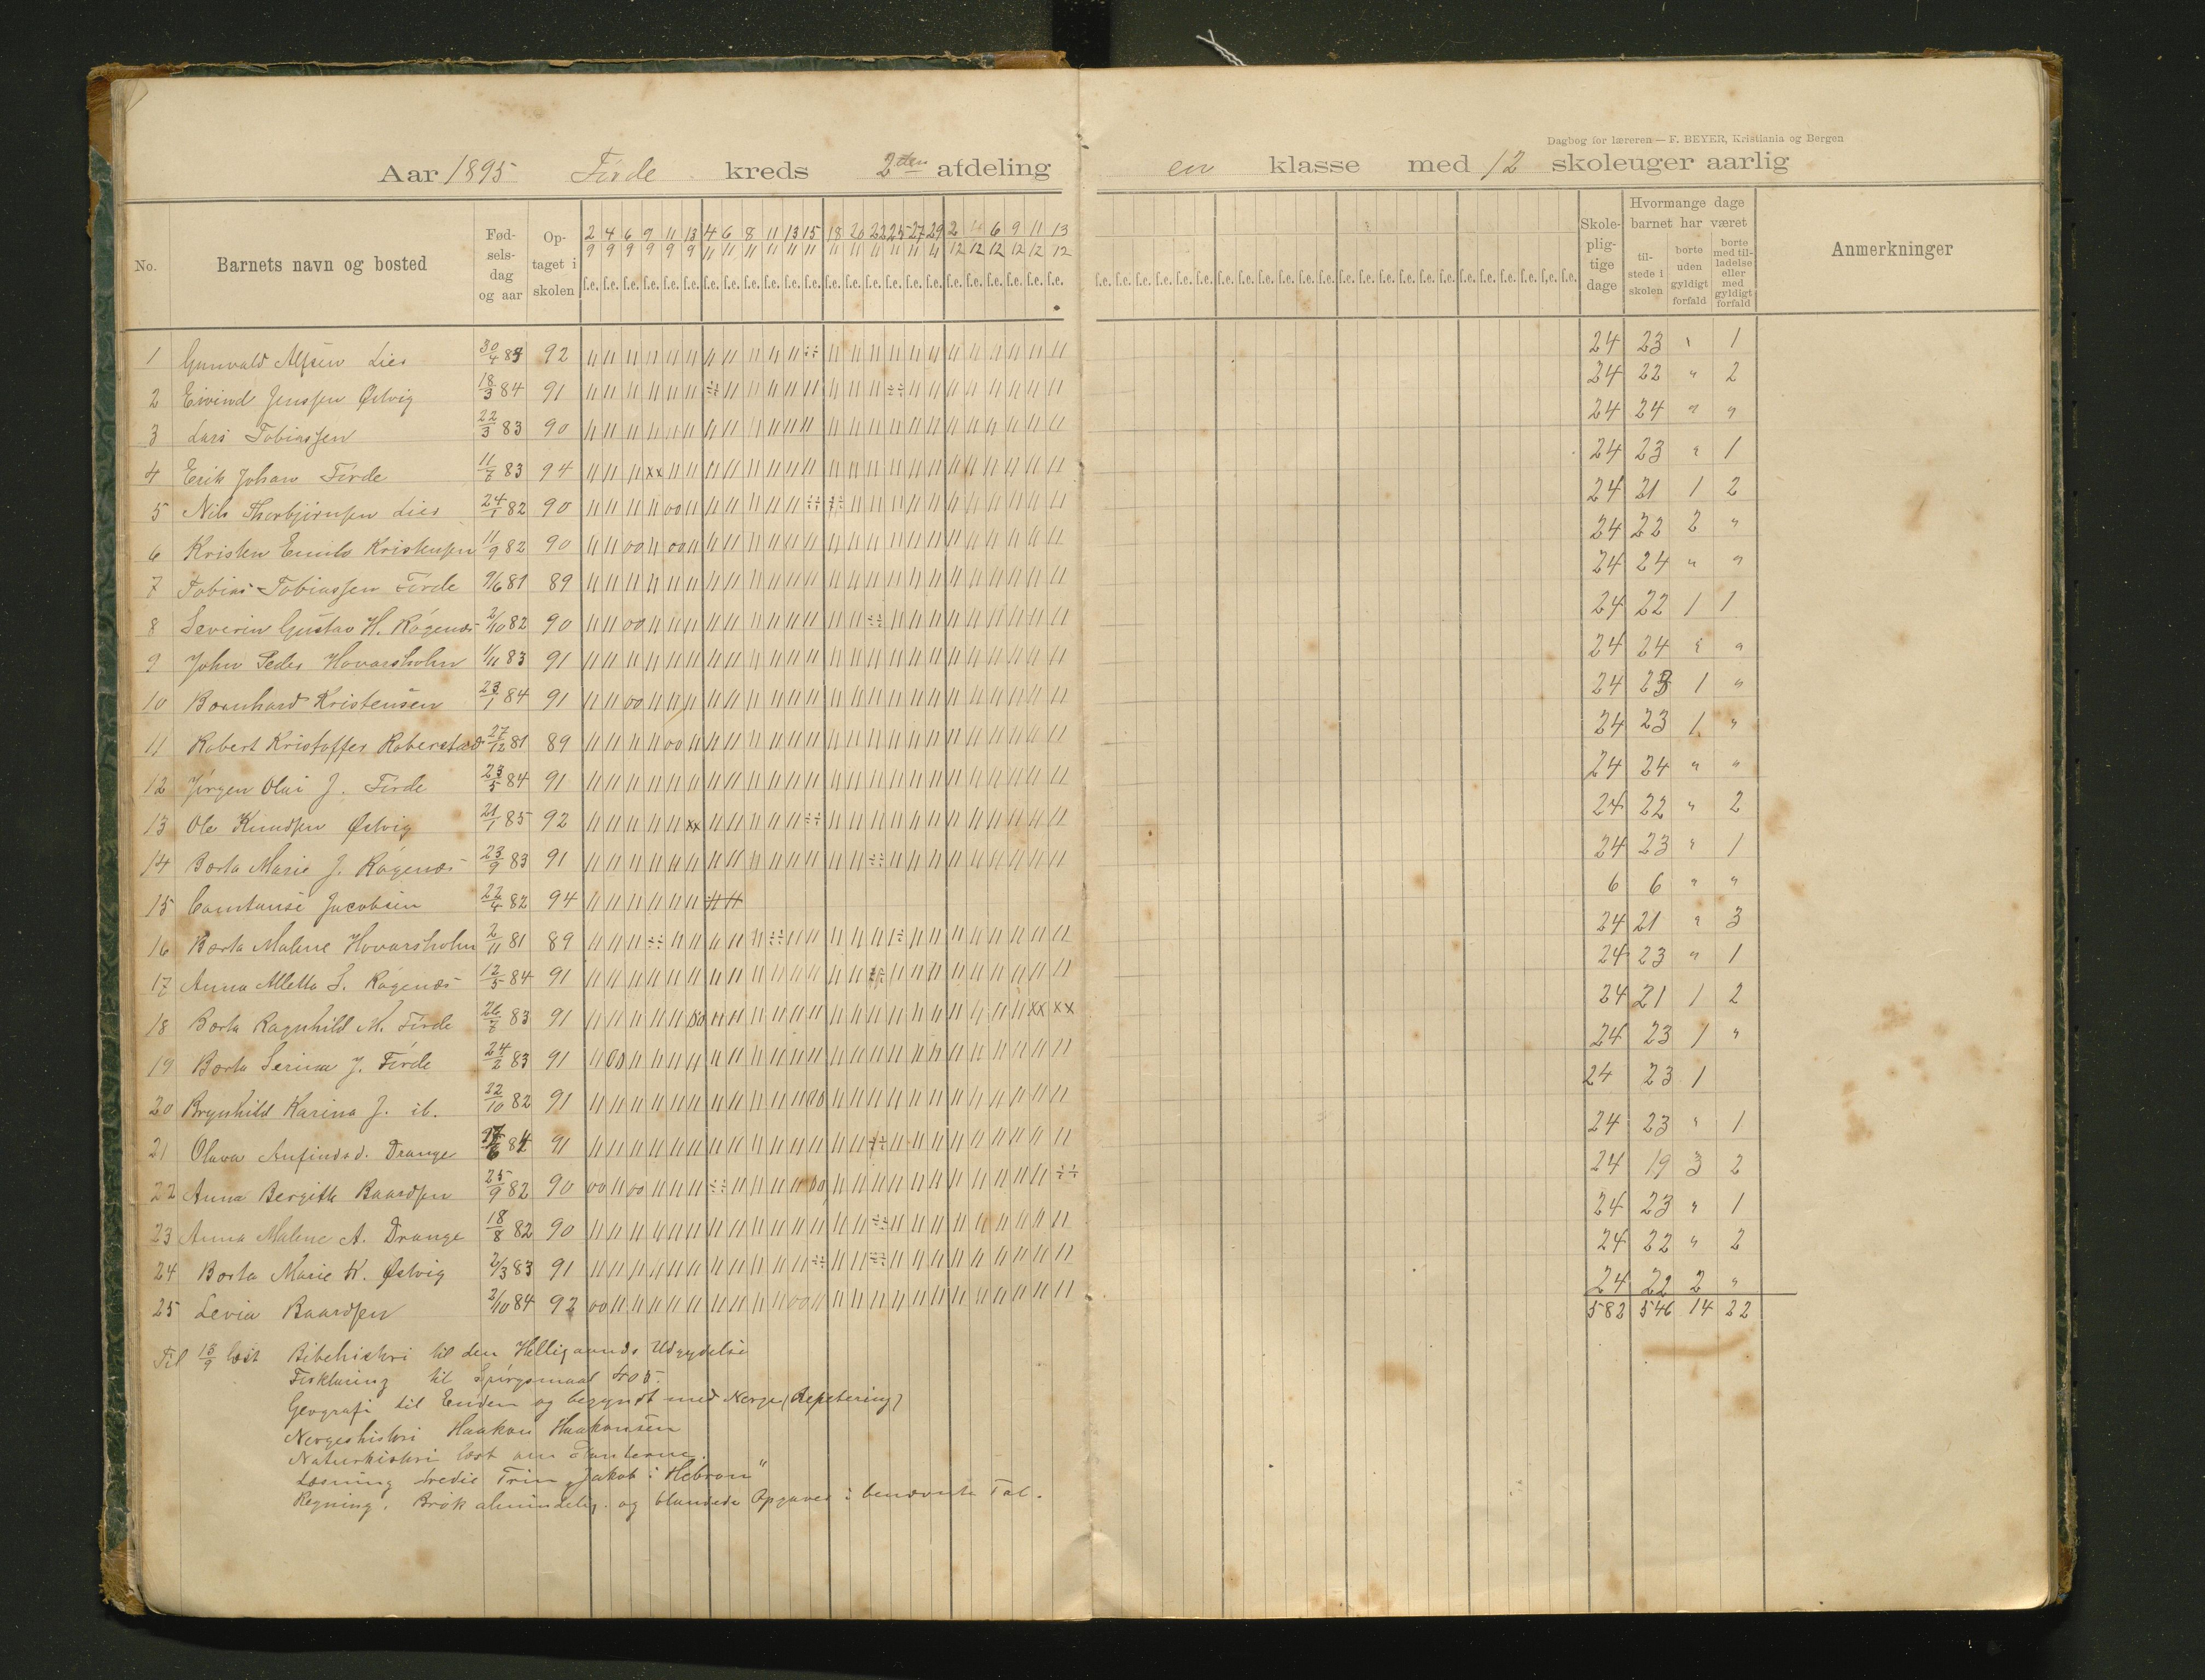 Dagbog for læreren — F. BEYER, Kristiania og Bergen
Aar 1895 Förde kreds 2den afdeling en klasse med 12 skoleuger aarlig
No. Barnets navn og bosted Fødselsdag og aar Optaget i skolen Skolepligtige dage Hvormange dage barnet har været tilstede i skolen borte uden gyldigt forfald borte med tilladelse eller med gyldigt forfald Anmerkninger
2 4 6 9 11 13 4 6 8 11 13 15 18 20 22 25 27 29 2 6 9 11 13
9 9 9 9 9 9 11 11 11 11 11 11 11 11 11 11 11 11 12 12 12 12 12 12
f.e. f.e. f.e. f.e. f.e. f.e. f.e. f.e. f.e. f.e. f.e. f.e. f.e. f.e. f.e. f.e. f.e. f.e. f.e. f.e. f.e. f.e. f.e. f.e.
1 Gunvald Alfsen Lier 30/4 92 24 23 " 1
2 Eivind Jenssen Østvig 18/3 84 91 24 22 " 2
3 Lars Tobiassen 22/3 83 90 24 24 " "
4 Erik Johan Förde 11/7 83 94 24 23 " 1
5 Nils Thorbjørnsen Lier 24/1 82 90 24 21 1 2
6 Kristen Emil Kristensen 11/9 82 90 24 22 2 "
7 Tobias Tobiassen Förde 9/6 81 89 24 24 " "
8 Severin Gustav H. Rágenæs 2/10 82 90 24 22 1 1
9 John Peder Hovarsholm 1/11 83 91 24 24 " "
10 Bernhard Kristensen 23/1 84 91 24 23 1 "
11 Robert Kristoffer Roberstad 27/12 81 89 24 23 1 "
12 Jörgen Olai J. Förde 23/5 84 91 24 24 " "
13 Ole Knudsen Østvig 21/1 85 92 24 22 " 2
14 Borta Marie J. Rágenæs 23/9 83 91 24 23 " 1
15 Jacobsen 22/4 82 94 6 6 " "
16 Borta Malene Hovarsholm 2/11 81 89 24 21 " 3
17 Anna Alletta S. Rágenæs 12/5 84 91 24 23 " 1
18 Borta Ragnhild M. Förde 26/7 83 91 24 21 1 2
19 Borta Serina J. Förde 24/2 83 91 24 23 1 "
20 Brynhild Karina J. ib. 22/10 82 91 24 23 1
21 Olava Anfindsd. Drange 84 91 24 23 " 1
22 Anna Bergith Baardsen 25/9 82 90 24 19 3 2
23 Anna Malene A. Drange 18/8 82 90 24 23 " 1
24 Borta Marie K. Østvig 2/3 83 91 24 22 " 2
25 Levia Baardsen 2/10 84 92 24 22 2 "
582 546 14 22
Til 13/9 læst Bibelhistori til den Helligaands Udgydelse
Forklaring til Spörgsmaal 405.
Geografi til Enden og begyndt med Norge (Repetering)
Norgeshistori Haakon Haakonsen
Naturhistori læst om Planterne.
Læsning tredie Trin "Jakob i Hebron"
Regning. Brök almindelig. og blandede Opgaver i benævnte Tal.